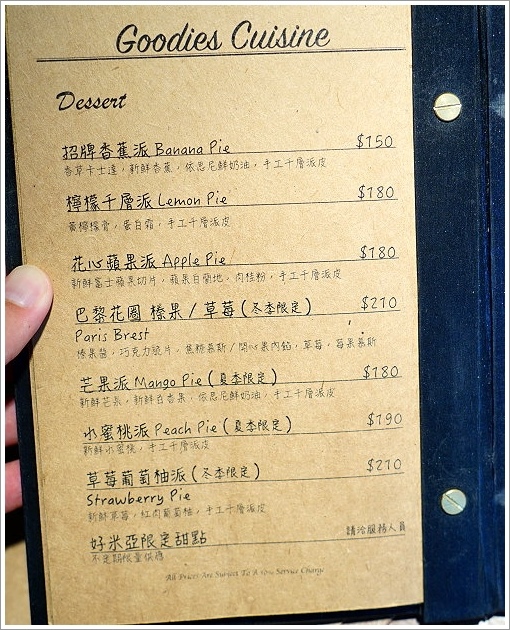 Goodies Cuisine
Dessert
招牌香蕉派 Banana Pie $150
香草卡士達，新鮮香蕉，依思尼鮮奶油，手工千層派皮
檸檬千層派 Lemon Pie $180
黃檸檬膏，蛋白霜，手工千層派皮
花心蘋果派 Apple Pie $180
新鮮富士蘋果切片，蘋果白蘭地，肉桂粉，手工千層派皮
巴黎花圈 榛果 / 草莓 (冬季限定) $210
Paris Brest
榛果醬，巧克力脆片，焦糖慕斯 / 開心果內餡，草莓，莓果慕斯
芒果派 Mango Pie (夏季限定) $180
新鮮芒果，新鮮百香果，依思尼鮮奶油，手工千層派皮
水蜜桃派 Peach Pie (夏季限定) $190
新鮮水蜜桃，手工千層派皮
草莓葡萄柚派 (冬季限定) $210
Strawberry Pie
新鮮草莓，紅肉葡萄柚，手工千層派皮
好米亞限定甜點 請洽服務人員
不定期限量供應
All Prices Are Subject To A 10% Service Charge